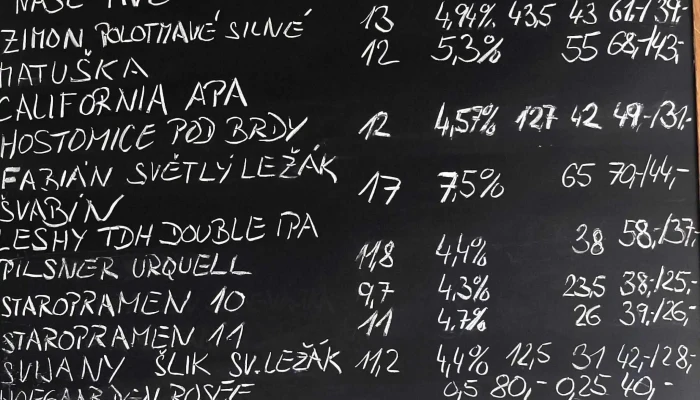 NAŠE
ZIMON POLOTMAVÉ SILNÉ 13 4,94% 43,5 43 61,-/39,-
MATUŠKA 12 5,3% 55 68,-/43,-
CALIFORNIA APA
HOSTOMICE POD BRDY 12 4,57% 127 42 49,-/31,-
FABIÁN SVĚTLÝ LEŽÁK
ŠVABÍN 17 7,5% 65 70,-/44,-
LESHY TDH DOUBLE IPA
PILSNER URQUELL 11,8 4,4% 38 58,-/37,-
STAROPRAMEN 10 9,7 4,3% 23,5 38,-/25,-
STAROPRAMEN 11 11 4,7% 26 39,-/26,-
SVIJANY ŠLIK SV. LEŽÁK 11,2 4,4% 12,5 31 42,-/28,-
0,5 80,- 0,25 40,-